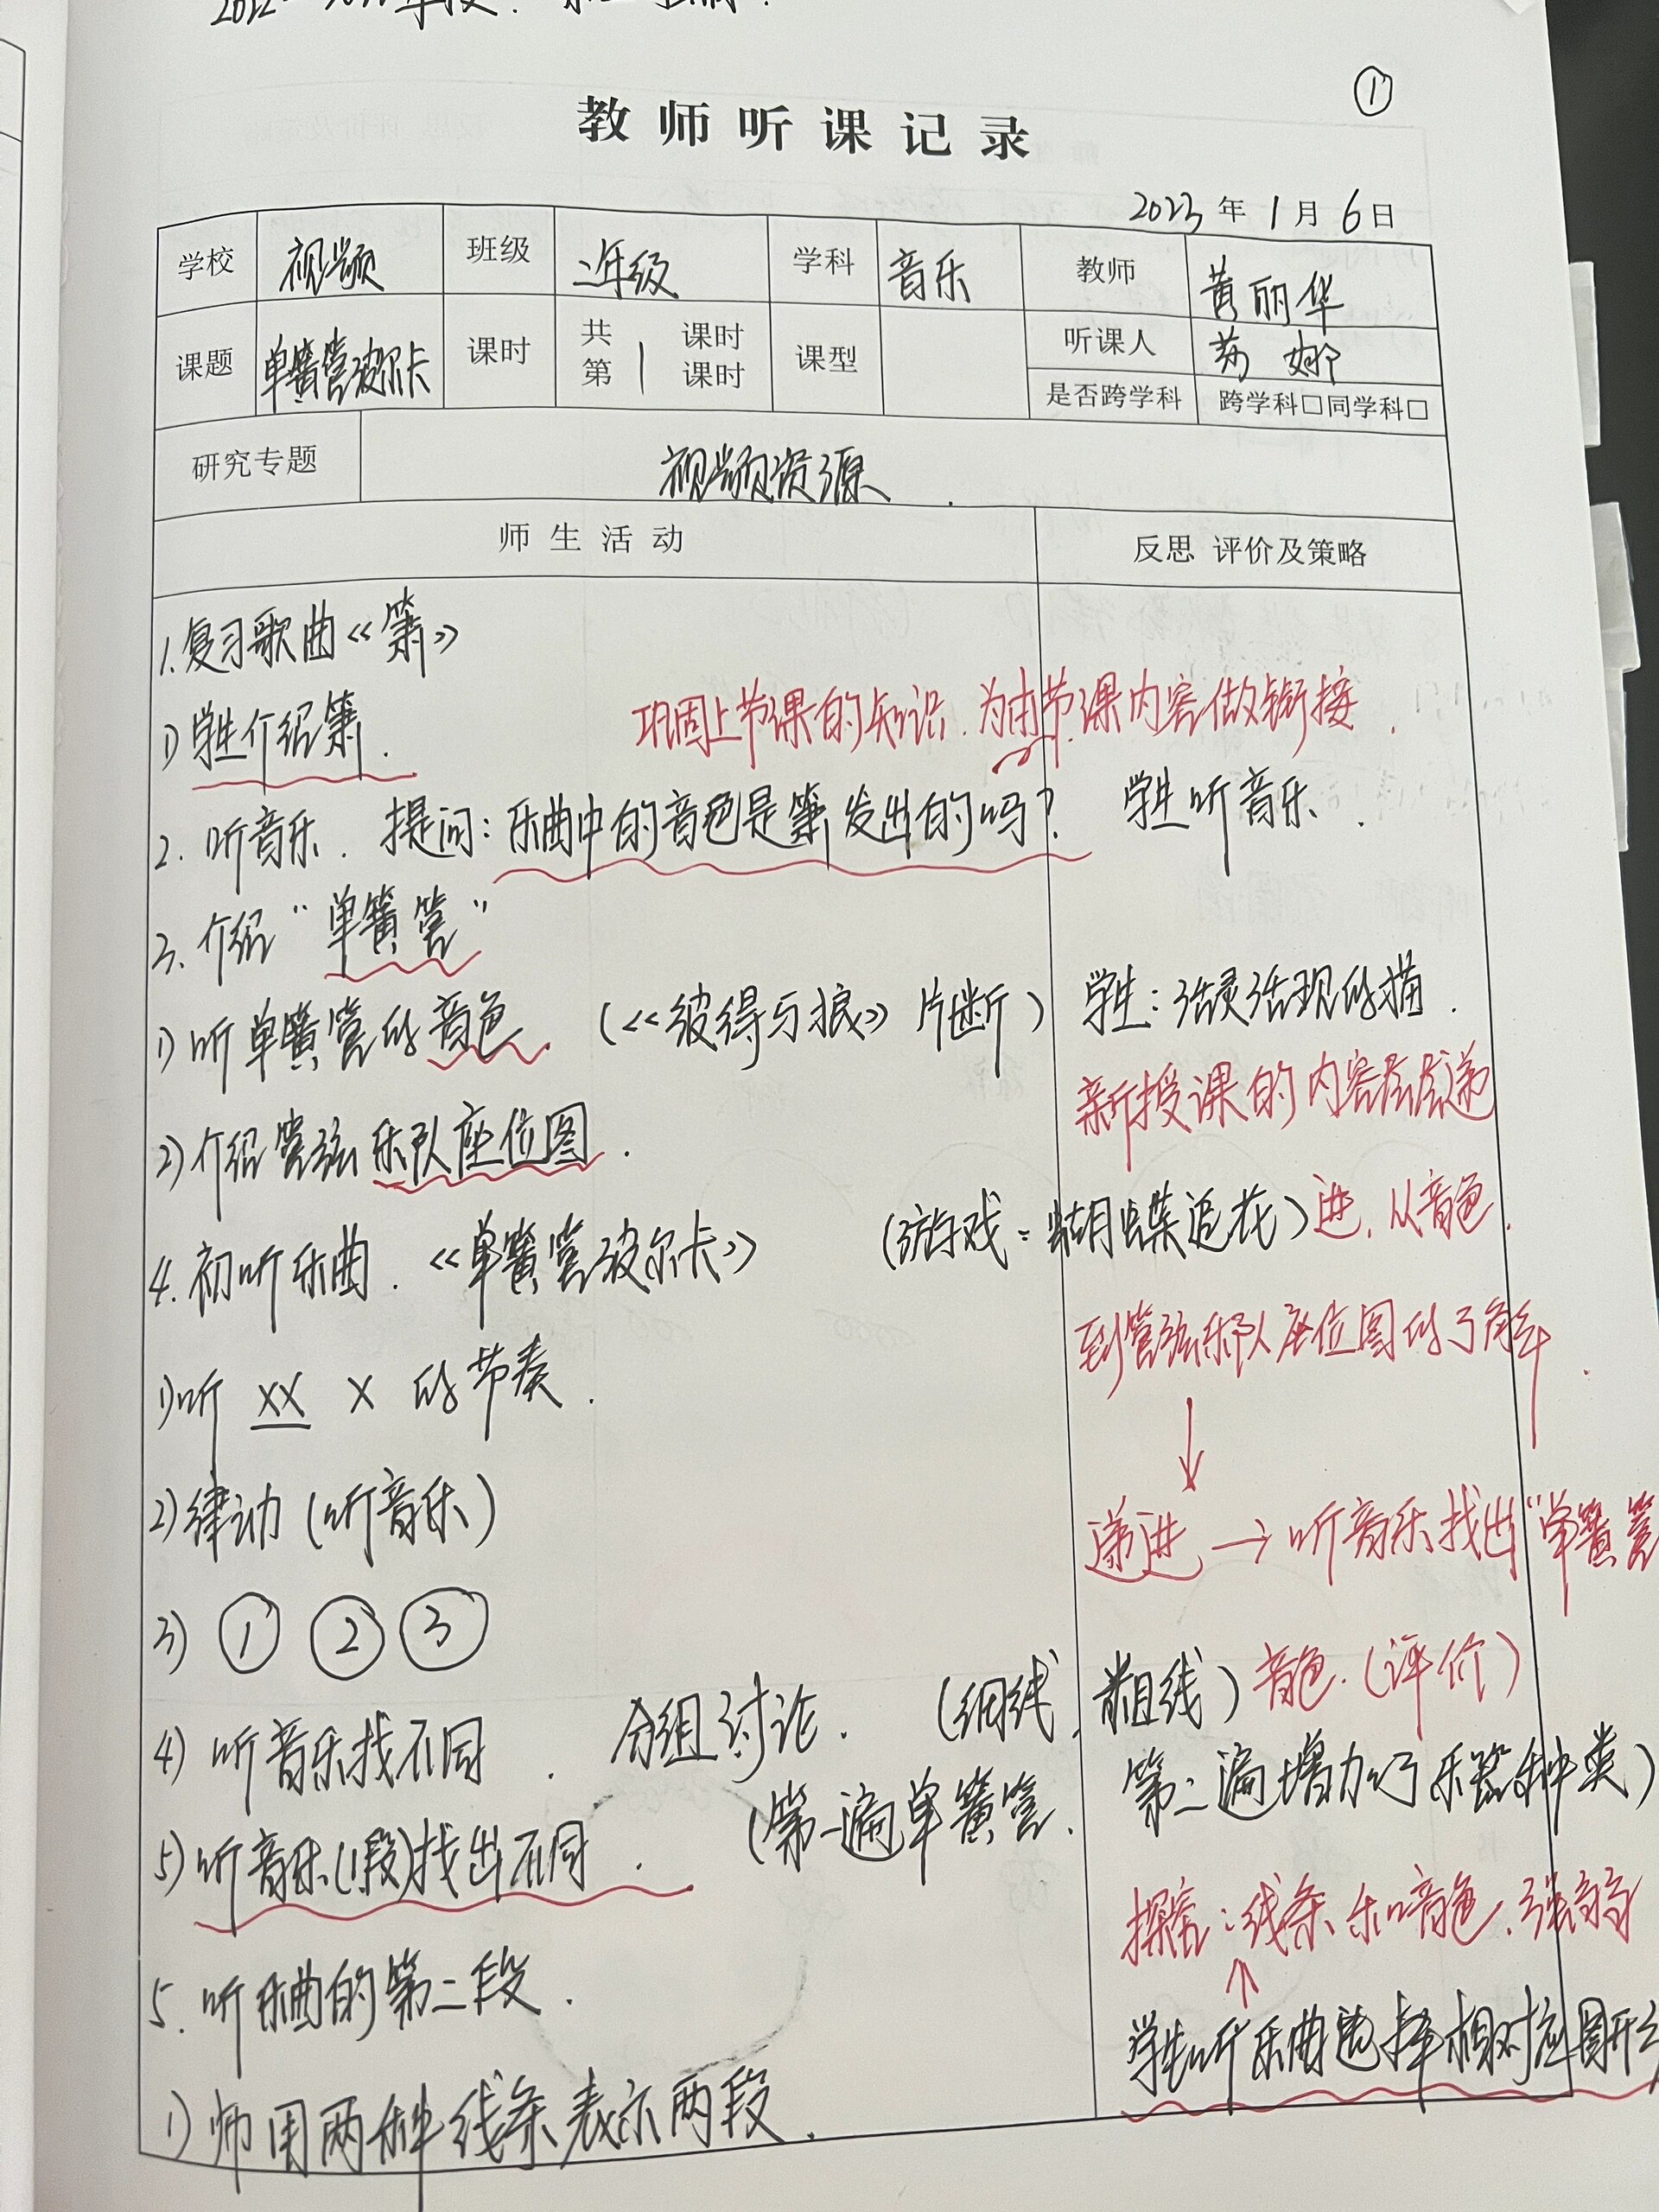 ①
教师听课记录
2023 年 1 月 6 日
学校 视频 班级 二年级 学科 音乐 教师 黄丽华
课题 单簧管波尔卡 课时 共 课时 第 1 课时 课型 听课人 娜
是否跨学科 跨学科□同学科□
研究专题 视频资源
师生活动 反思 评价及策略
1.复习歌曲《箫》
1) 学生介绍箫.
巩固上节课的知识.为本节课内容做衔接.
2. 听音乐. 提问:乐曲中的音色是箫发出的吗? 学生听音乐.
3. 介绍“单簧管”
1) 听单簧管的音色. (《彼得与狼》片断) 学生:活灵活现的猫.
新授课的内容层层递
2) 介绍管弦乐队座位图.
4. 初听乐曲.《单簧管波尔卡》 (游戏:蝴蝶追花) 进.从音色.
到管弦乐队座位图的了解.
1) 听 XX X 的节奏.
↓
2) 律动(听音乐)
递进→听音乐找出“单簧管
3) ① ② ③
音色.(评价)
4) 听音乐找不同. 分组讨论. (细线、粗线)
5) 听音乐(1段)找出不同. (第一遍单簧管. 第二遍增加了乐器种类)
探究:线条和音色.强弱
↑
5. 听乐曲的第二段.
学生听乐曲选择相对应图形
1) 师用两种线条表示两段.